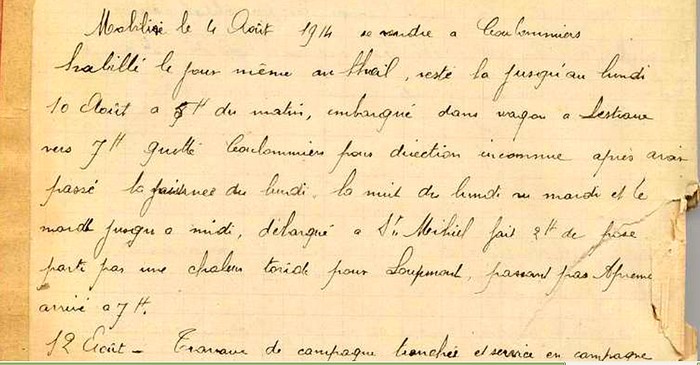 Mobilisé le 4 Août 1914 se rendre a Coulommiers
habillé le jour même au thail, resté la jusqu'au lundi
10 Août a 5H du matin, embarqué dans wagon a bestiaux
vers 7H quitté Coulommiers pour direction inconnue après avoir
passé la journée du lundi, la nuit du lundi au mardi et le
mardi jusqu'a midi, débarqué a St Meihiel fait 2H de pose
parti par une chaleur toride pour Loupmont, passant pas Apremo
arrivé a 7H.
12 Août - Travaux de campagne tranchée et service en campagne